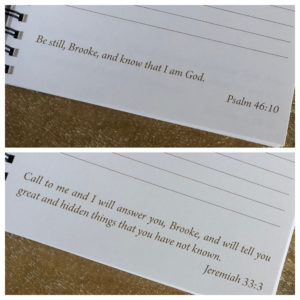 Be still, Brooke, and know that I am God.
Psalm 46:10
Call to me and I will answer you, Brooke, and will tell you
great and hidden things that you have not known.
Jeremiah 33:3